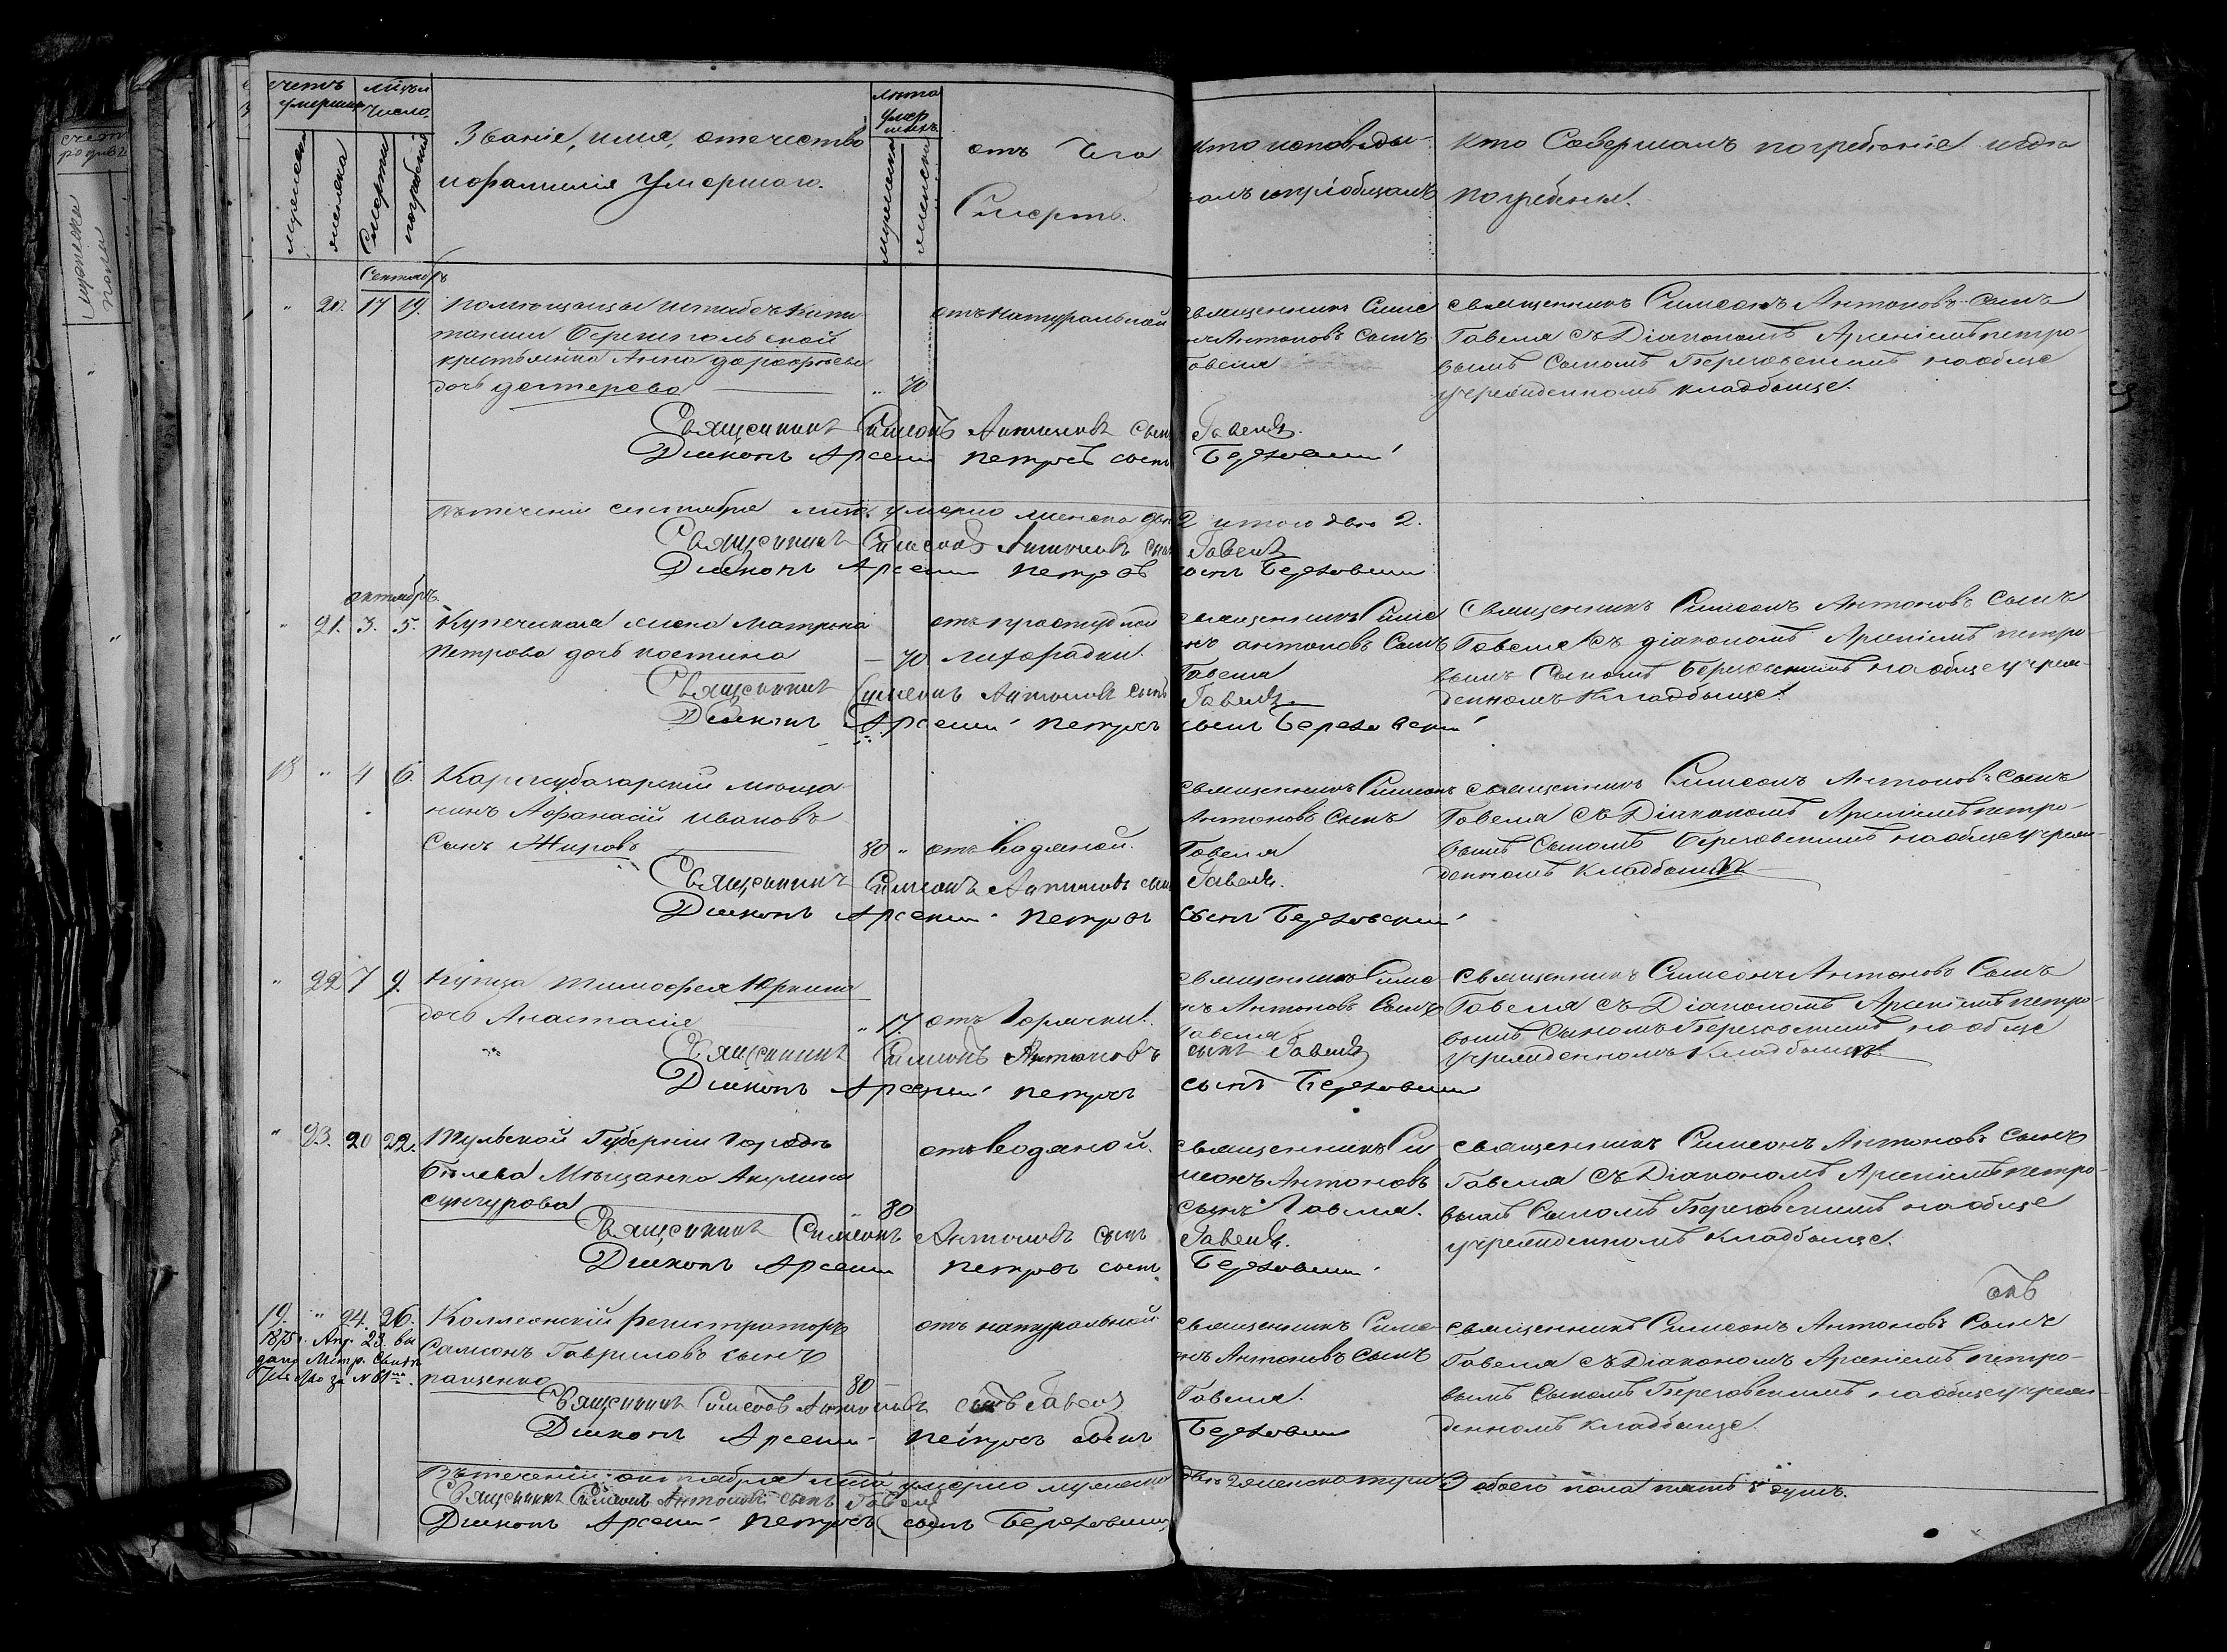 счетъ умершихъ
мѣсяцъ число
Званіе, имя, отечество
и фамилія умершаго.
лѣта умершихъ
отъ чего
смерть.
кто исповѣды-
валъ и пріобщалъ
кто Совершалъ погребеніе и гдѣ
погребены.
мужеска
женска
Смерти
погребенія
мужеска
женска
Сентябрь
" 20. 17 19. помѣщицы Штабсъ Капи
таншы
крестьянка Анна
дочь
" 70
отъ натуральной
священникъ Симе
онъ Антоновъ сынъ
Гавеля
священникъ Симеонъ Антоновъ сынъ
Гавеля съ Діакономъ Арсеніемъ петро-
вымъ Сыномъ Березовскимъ на обще
учрежденномъ кладбыще.
Священникъ Симеонъ Антоновъ сынъ Гавеля.
Диаконъ Арсений петровъ сынъ Березовский
Въ теченіи сентября мца умерло женска двѣ 2 итого двѣ 2.
Священникъ Симеонъ Антоновъ сынъ Гавеля
Диаконъ Арсений петровъ сынъ Березовский
октябрь.
" 21. 3. 5. Купеческая жена Матрона
Петрова дочь костина
— 70
отъ простудной
лихорадки.
священникъ Симе
онъ антоновъ Сынъ
Гавеля
Священникъ Симеонъ Антоновъ Сынъ
Гавеля съ діакономъ Арсеніемъ петро-
вымъ Сыномъ Березовскимъ на обще учреж-
денномъ Кладбыще.
Священникъ Симеонъ Антоновъ сынъ Гавеля.
Диаконъ Арсений петровъ сынъ Березовский
18 " 4 6. Карасубазарский мѣща
нинъ Афанасий Ивановъ
Сынъ Жировъ
80 " отъ водяной.
священникъ Симеонъ
Антоновъ Сынъ
Гавеля
священникъ Симеонъ Антоновъ Сынъ
Гавеля съ Діакономъ Арсеніемъ петро-
вымъ Сыномъ Березовскимъ на обще учреж-
денномъ Кладбыще
Священникъ Симеонъ Антоновъ сынъ Гавеля.
Диаконъ Арсений петровъ сынъ Березовский
" 22 7 9. Купца Тимофея Юркина
дочь Анастасія
" 17. отъ Горячки.
священникъ Симе
онъ Антоновъ Сынъ
Гавеля
священникъ Симеонъ Антоновъ Сынъ
Гавеля съ Діакономъ Арсеніемъ петро-
вымъ Сыномъ Березовскимъ на обще
учрежденномъ Кладбыще.
Священникъ Симеонъ Антоновъ сынъ Гавеля
Диаконъ Арсений петровъ сынъ Березовский
" 23. 20 22. Тульской Губерніи Города
Бѣлева Мѣщанка Акулина
сунгурова
" 80
отъ водяной.
священникъ Си
меонъ Антоновъ
сынъ Гавеля.
священникъ Симеонъ Антоновъ сынъ
Гавеля съ Діакономъ Арсеніемъ петро-
вымъ Сыномъ Березовскимъ на обще
учрежденномъ Кладбыще.
Священникъ Симеонъ Антоновъ сынъ Гавеля.
Диаконъ Арсений петровъ сынъ Березовский
19. " 24. 26. Коллежскій регистраторъ
Самсонъ Гавриловъ сынъ
пащенко
80 —
отъ натуральной
1875 г. Апр. 23. вы
дано Метр. Свидѣт
за № 61
священникъ Симе
онъ Антоновъ сынъ
Гавеля.
священникъ Симеонъ Антоновъ Сынъ
Гавеля съ Діакономъ Арсеніемъ петро-
вымъ Сыномъ Березовскимъ на обще учреж-
денномъ кладбыще.
Священникъ Симеонъ Антоновъ сынъ Гавеля
Диаконъ Арсений петровъ сынъ Березовский
Въ теченіи октября мца умерло мужеска два 2 женска три 3 обоего пола пять 5 душъ.
Священникъ Симеонъ Антоновъ сынъ Гавеля
Диаконъ Арсений петровъ сынъ Березовский